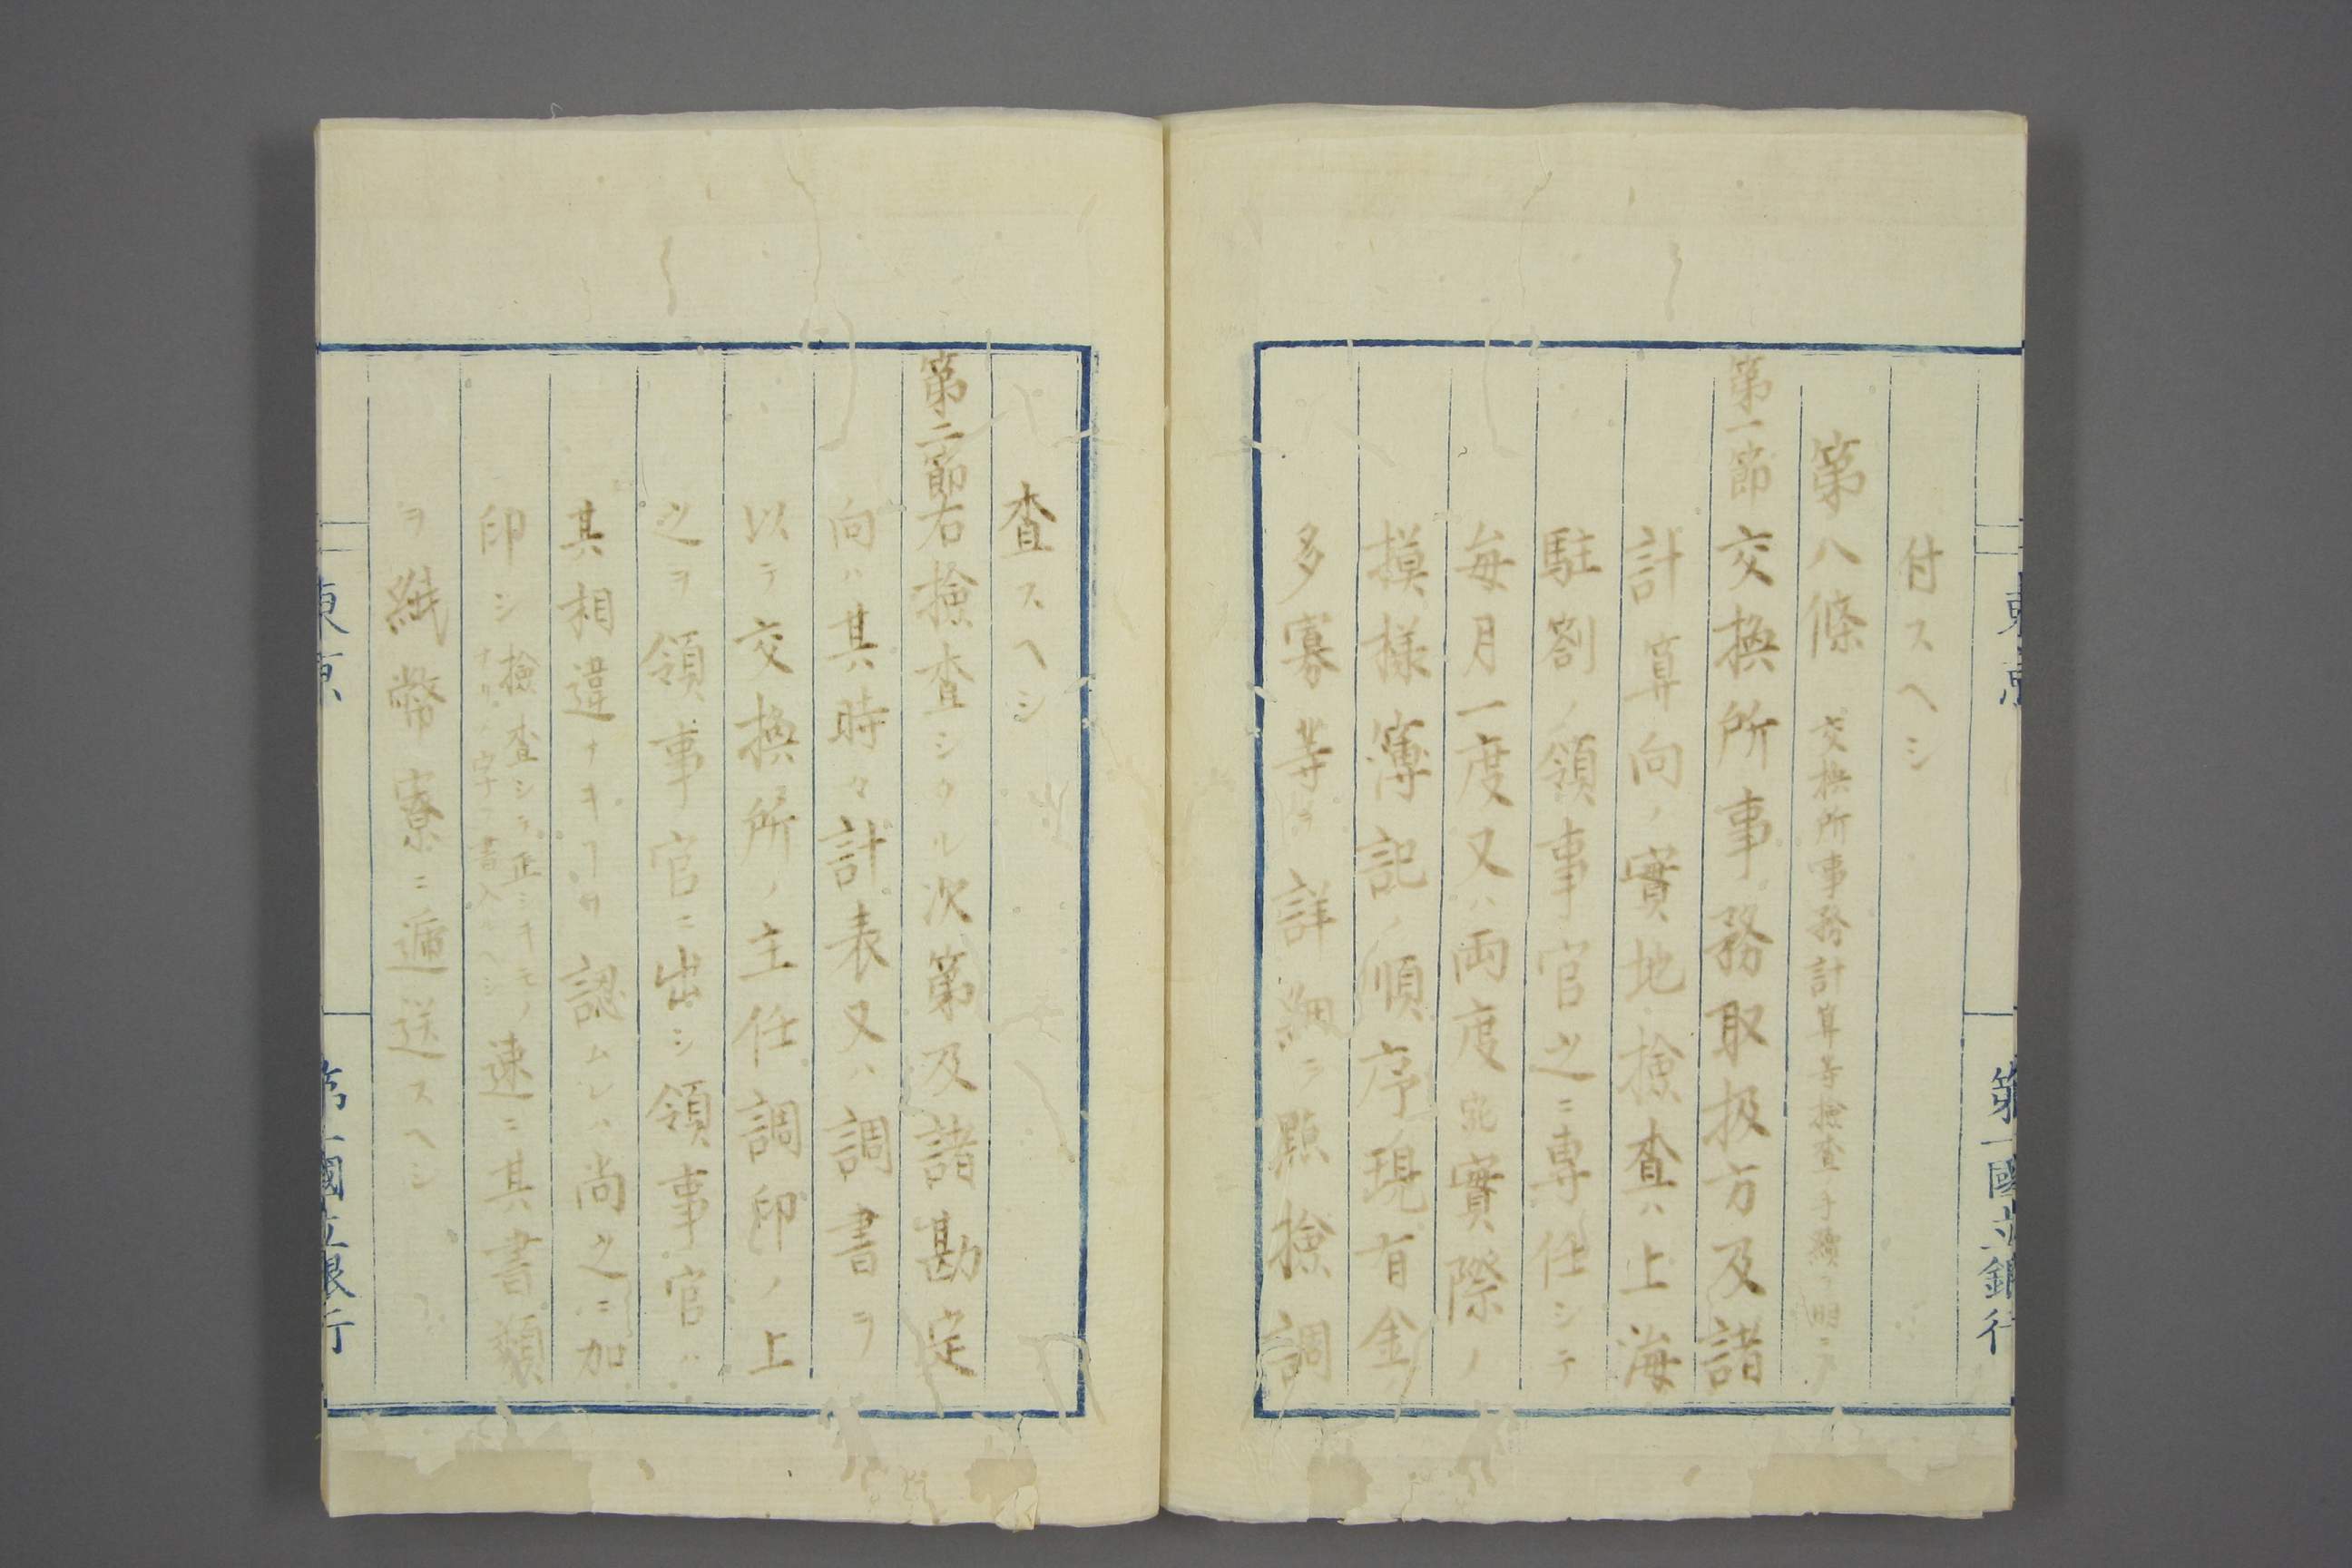 付スヘシ
第八條 交換所事務計算等撿査ノ手續ヲ明ニス
第一節 交換所事務取扱方及諸
計算向ノ實地撿査ハ上海
駐劄ノ領事官之ニ專任シテ
毎月一度又ハ両度宛實際ノ
摸様簿記ノ順序現有金ノ
多寡等ヲ詳細ニ點撿調
東京 第一國立銀行
査スヘシ
第二節 右撿査シタル次第及諸勘定
向ハ其時々計表又ハ調書ヲ
以テ交換所ノ主任調印ノ上
之ヲ領事官ニ出シ領事官ハ
其相違ナキヿヲ認ムレハ尚之ニ加
印シ 撿査シテ正シキモノ
ナリノ字ヲ書入ルヘシ 速ニ其書類
ヲ紙幣寮ニ遞送スヘシ
東京 第一國立銀行